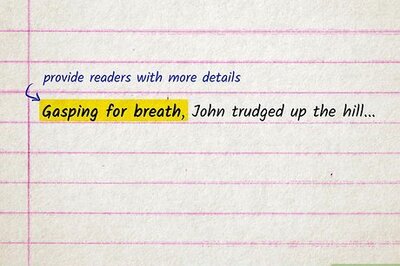 provide readers with more details
Gasping for breath, John trudged up the hill...